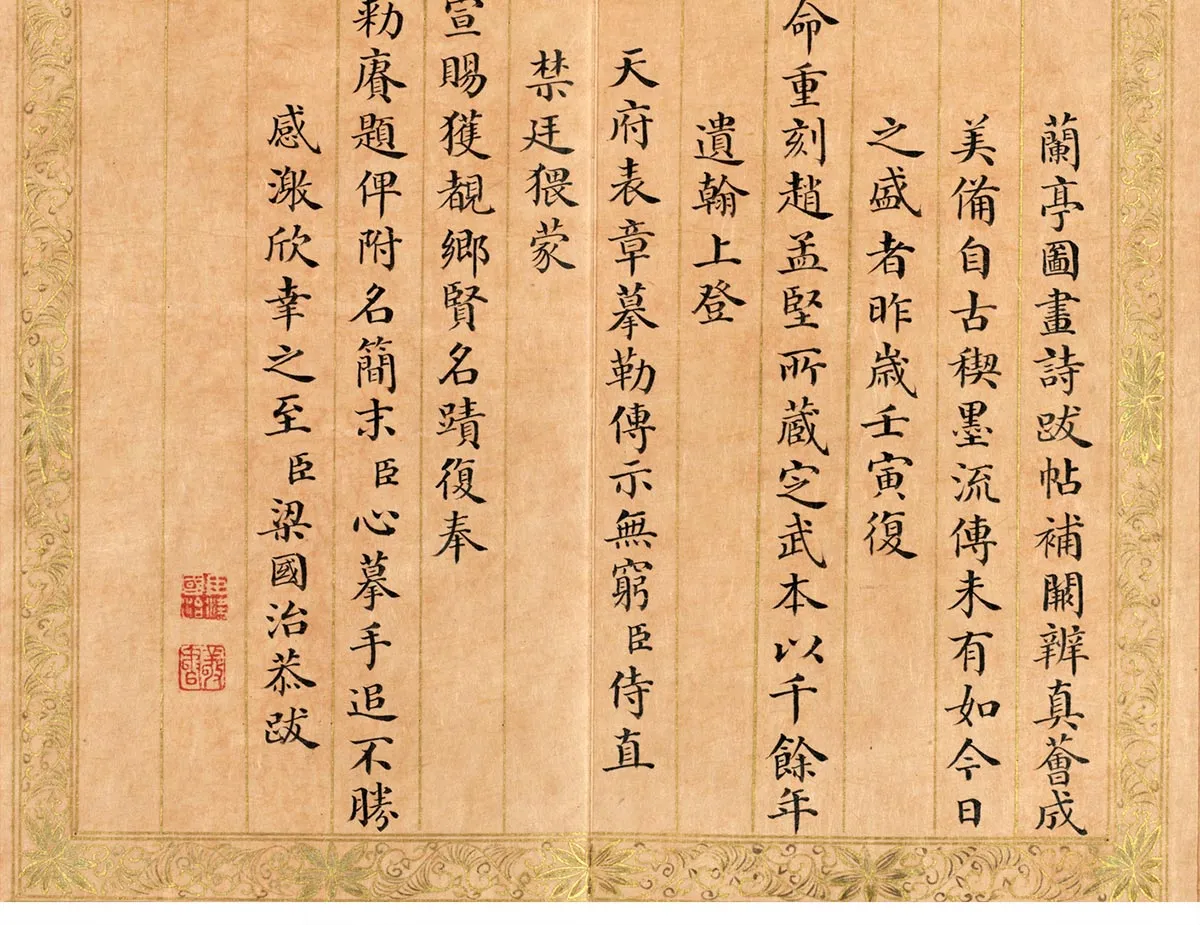 蘭亭圖畫詩跋帖補闕辨真薈成
美備自古稧墨流傳未有如今日
之盛者昨歲壬寅復
命重刻趙孟堅所蔵定武本以千餘年
遺翰上登
天府表章摹勒傳示無窮臣侍直
禁廷猥蒙
宣賜獲覩鄉賢名蹟復奉
勅賡題俾附名簡末臣心摹手追不勝
感激欣幸之至臣梁國治恭跋